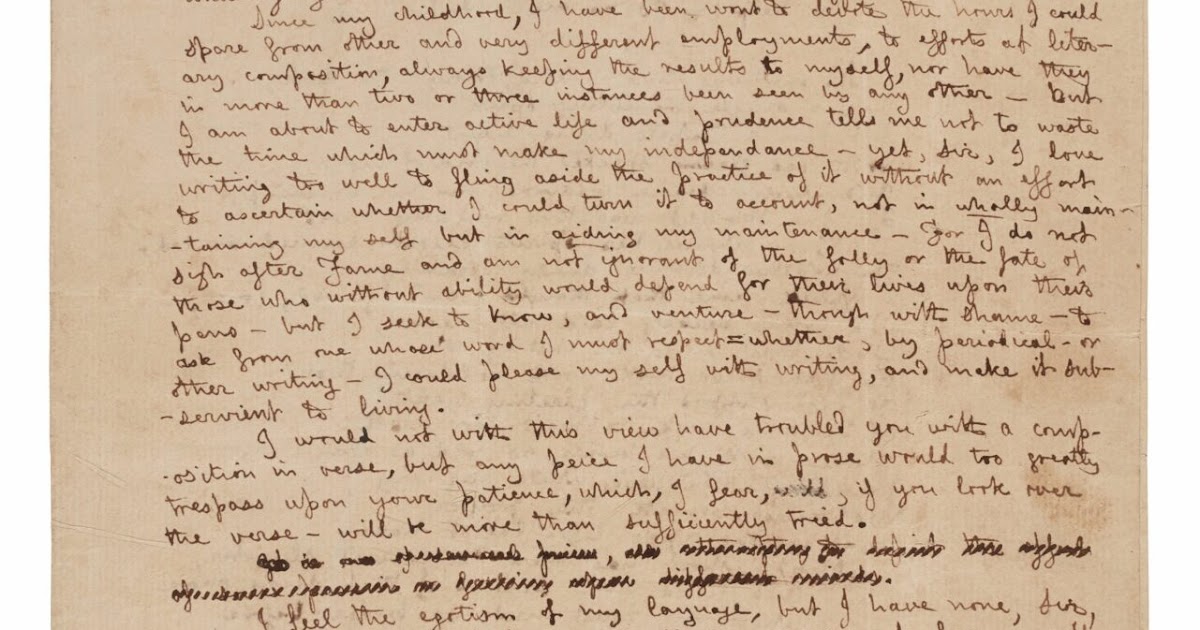 Since my childhood, I have been wont to devote the hours I could
spare from other and very different employments, to efforts at liter-
ary composition, always keeping the results to myself, nor have they
in more than two or three instances been seen by any other – But
I am about to enter active life and prudence tells me not to waste
the time which must make my independance – yet, sir, I love
writing too well to fling aside the practice of it without an effort
to ascertain whether I could turn it to account, not in wholly main-
-taining my self but in aiding my maintenance – For I do not
sigh after Fame and am not ignorant of the folly or the fate of
those who without ability would depend for their lives upon their
pens – but I seek to know, and venture – though with shame – to
ask from one whose word I must respect = whether, by periodical - or
other writing – I could please my self with writing, and make it sub-
-servient to living.
I would not with this view have troubled you with a comp-
-osition in verse, but any peice I have in prose would too greatly
trespass upon your patience, which, I fear, , if you look over
the verse – will be more than sufficiently tried.
I feel the egotism of my language, but I have none, sir,